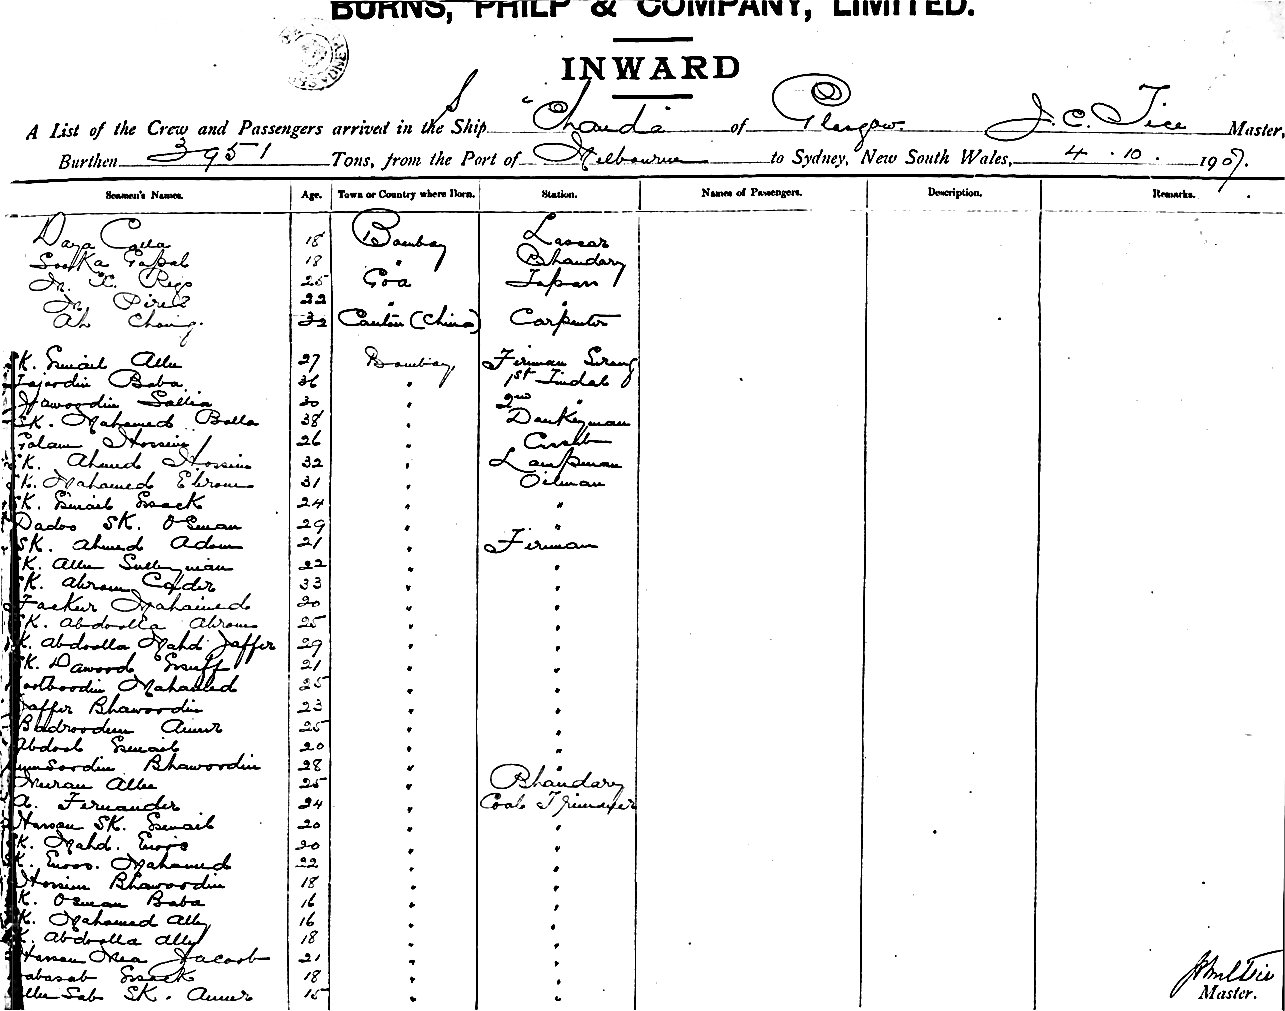 BURNS, PHILP & COMPANY, LIMITED.
INWARD
A List of the Crew and Passengers arrived in the S Ship "Chanda of Glasgow. J. C. Tice Master,
Burthen 3951 Tons, from the Port of Melbourne to Sydney, New South Wales, 4 . 10 . 1907.
Seamen's Names. Age. Town or Country where Born. Station. Names of Passengers. Description. Remarks.
Daya Calla 18 Bombay Lascar
Gopal 18 " Bhandary
Rego 25 Goa Topass
Pires 22 " "
Ah Chong. 32 Canton (China) Carpenter
SK. Esmail Allee 27 Bombay Fireman Serang
Tajordin Baba 36 " 1st Tindal
30 " 2nd "
SK. Mahamed Balla 38 " Donkeyman
Golam Hossein 26 " Cassab
SK. Ahmed Hossein 32 " Lampman
SK. Mahamed Ebram 31 " Oilman
SK. Esmail Essack 24 " "
Dadoo SK. Osman 29 " "
SK. Ahmed Adam 21 " Fireman
SK. Allee Sulleyman 22 " "
SK. Abram 33 " "
Mahamed 20 " "
SK. Abdoolla Abram 25 " "
SK. Abdoolla Mahd Jaffer 29 " "
SK. Dawood Essuff 21 " "
Mahamed 25 " "
Jaffer Bhawoodin 23 " "
Badroodeen Ameer 25 " "
Abdool Esmail 20 " "
Bhawoodin 28 " "
Meeran Allee 25 " Bhandary
A. Fernandez 24 " Coal Trimmer
Hassan SK. Esmail 20 " "
SK. Mahd. 20 " "
SK. Enoos. Mahamed 22 " "
Hossein Bhawoodin 18 " "
SK. Osman Baba 16 " "
SK. Mahamed Ally 16 " "
SK. Abdoolla Ally 18 " "
Hassan Mea Jacoob 21 " "
Babasab Essack 18 " "
Allee Sab SK. Ameer 15 " "
Master.